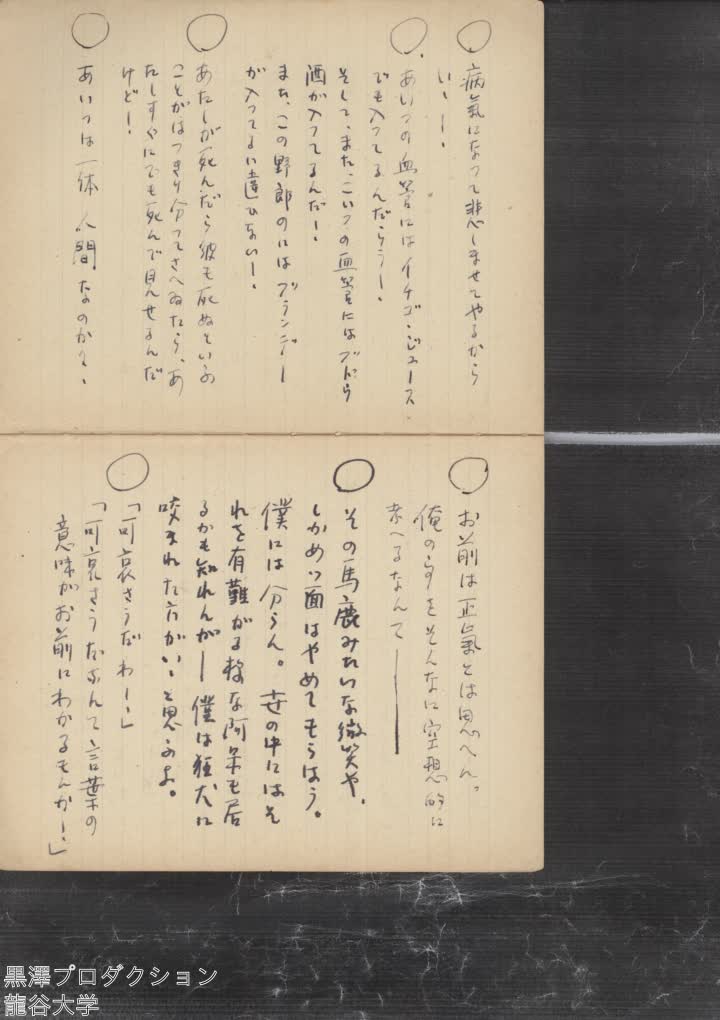 ○ 病氣になつて悲しませてやるから
いゝー、
○ あいつの血管にはイチゴ・ジュース
でも入つてるんだらうー、
そして、また、こいつの血管にはブドウ
酒が入つてるんだー、
また、この野郎のにはブランデー
が入つてるに違ひないー、
○ あたしが死んだら彼も死ぬといふ
ことがはつきり分つてさへゐたら、あ
たしすぐにでも死んで見せるんだ
けどー、
○ あいつは一体人間なのかい、
○ お前は正氣とは思へん。
俺の事をそんなに空想的に
考へるなんて――
○ その馬鹿みたいな微笑や、
しかめつ面はやめてもらはう。
僕には分らん。世の中にはそ
れを有難がる様な阿呆も居
るかも知れんがー僕は狂犬に
咬まれた方がいゝと思ふよ。
○ 「可哀さうだわー、」
「可哀さうだなんて言葉の
意味がお前にわかるもんかー、」
黒澤プロダクション
龍谷大学